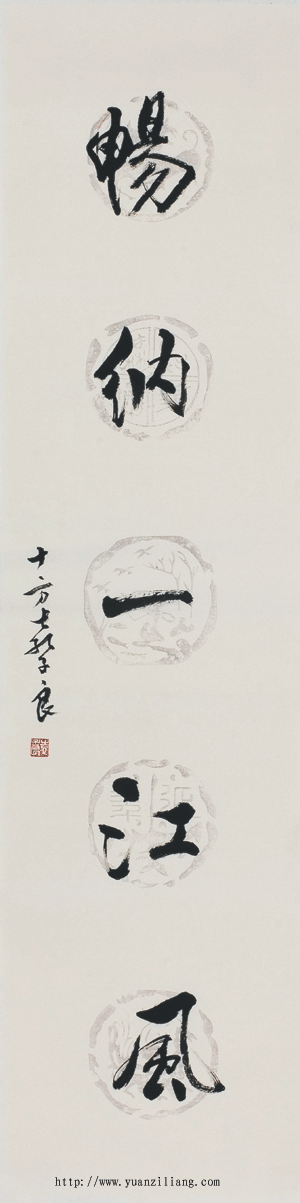 暢納一江風
十方士 子良
http://www.yuanziliang.com